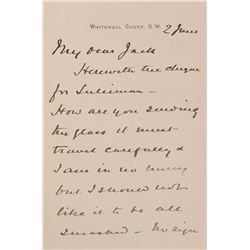 WHITEHALL COURT, S.W.
2 June
My dear Jack
Herewith the cheque
for Sulieman –
How are you sending
the glass it must
travel carefully &
I am in no hurry
but I should not
like it to be all
smashed – No sign